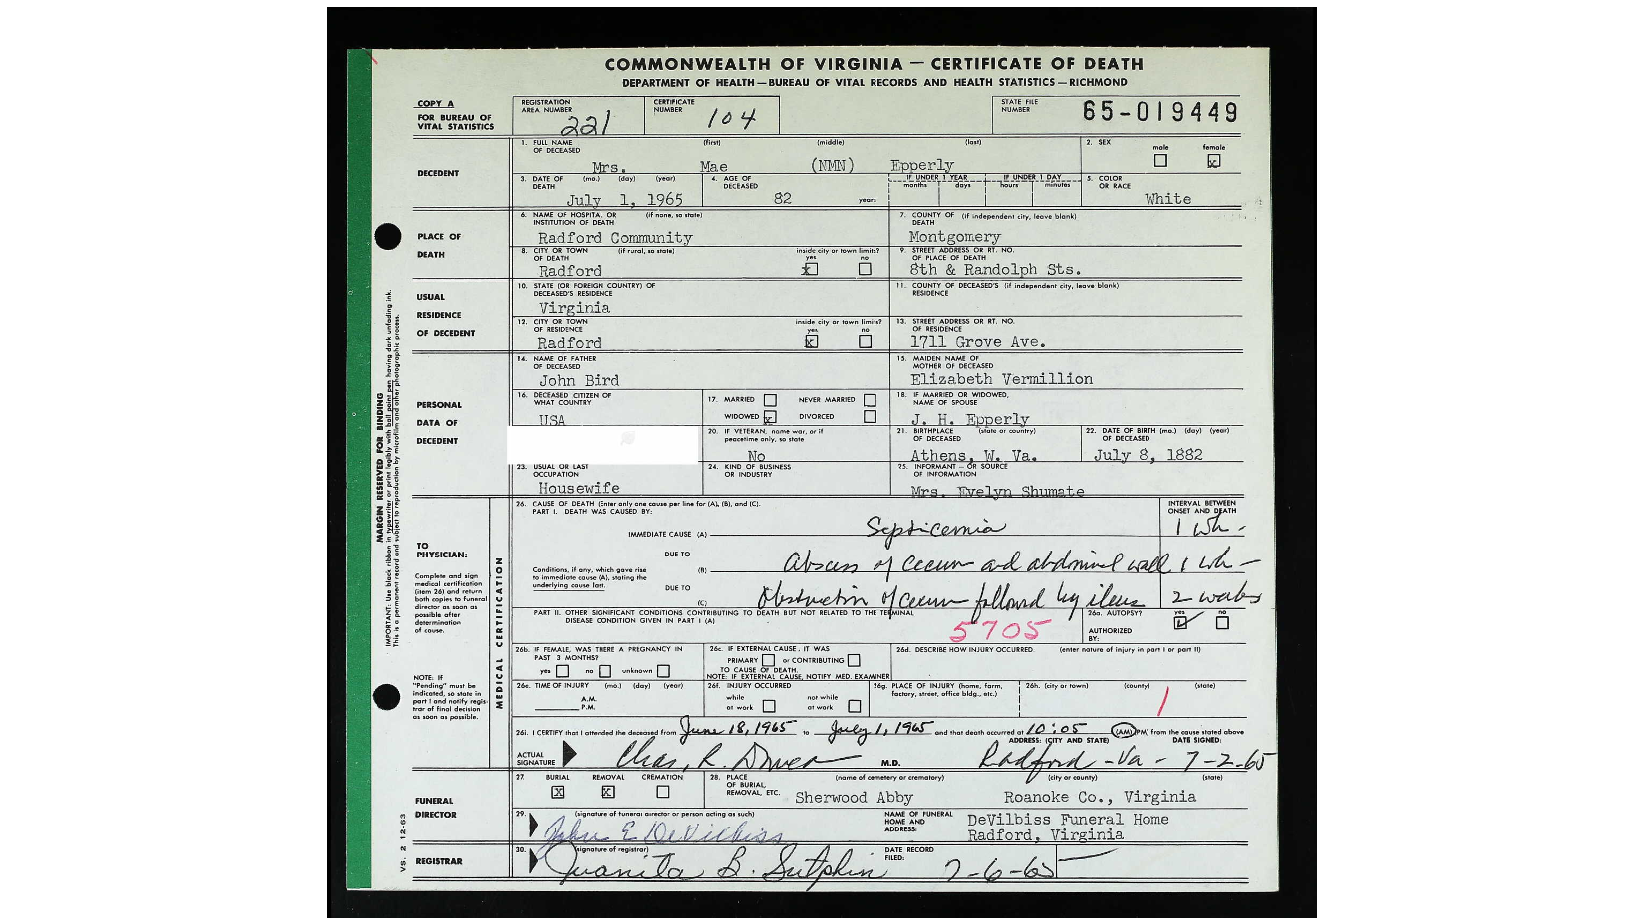 COMMONWEALTH OF VIRGINIA — CERTIFICATE OF DEATH
DEPARTMENT OF HEALTH—BUREAU OF VITAL RECORDS AND HEALTH STATISTICS—RICHMOND
COPY A
FOR BUREAU OF
VITAL STATISTICS
REGISTRATION
AREA NUMBER
221
CERTIFICATE
NUMBER
104
STATE FILE
NUMBER
65-019449
DECEDENT
1. FULL NAME (first) (middle) (last)
OF DECEASED
Mrs. Mae (NMN) Epperly
2. SEX
male female
x
3. DATE OF (mo.) (day) (year)
DEATH
July 1, 1965
4. AGE OF
DECEASED
82 years
IF UNDER 1 YEAR IF UNDER 1 DAY
months days hours minutes
5. COLOR
OR RACE
White
PLACE OF
DEATH
6. NAME OF HOSPITAL OR (if none, so state)
INSTITUTION OF DEATH
Radford Community
7. COUNTY OF (if independent city, leave blank)
DEATH
Montgomery
8. CITY OR TOWN (if rural, so state)
OF DEATH
Radford
inside city or town limits?
yes no
x
9. STREET ADDRESS OR RT. NO.
OF PLACE OF DEATH
8th & Randolph Sts.
USUAL
RESIDENCE
OF DECEDENT
10. STATE (OR FOREIGN COUNTRY) OF
DECEASED'S RESIDENCE
Virginia
11. COUNTY OF DECEASED'S (if independent city, leave blank)
RESIDENCE
12. CITY OR TOWN
OF RESIDENCE
Radford
inside city or town limits?
yes no
x
13. STREET ADDRESS OR RT. NO.
OF RESIDENCE
1711 Grove Ave.
PERSONAL
DATA OF
DECEDENT
14. NAME OF FATHER
OF DECEASED
John Bird
15. MAIDEN NAME OF
MOTHER OF DECEASED
Elizabeth Vermillion
16. DECEASED CITIZEN OF
WHAT COUNTRY
USA
17. MARRIED NEVER MARRIED
WIDOWED x DIVORCED
18. IF MARRIED OR WIDOWED,
NAME OF SPOUSE
J. H. Epperly
20. IF VETERAN, name war, or if
peacetime only, so state
No
21. BIRTHPLACE (state or country)
OF DECEASED
Athens, W. Va.
22. DATE OF BIRTH (mo.) (day) (year)
OF DECEASED
July 8, 1882
23. USUAL OR LAST
OCCUPATION
Housewife
24. KIND OF BUSINESS
OR INDUSTRY
25. INFORMANT — OR SOURCE
OF INFORMATION
Mrs. Evelyn Shumate
MARGIN RESERVED FOR BINDING
IMPORTANT: Use black ribbon in typewriter or print legibly with ball point pen having dark unfading ink.
This is a permanent record and subject to reproduction by microfilm and other photographic process.
TO
PHYSICIAN:
Complete and sign
medical certification
(item 26) and return
both copies to funeral
director as soon as
possible after
determination
of cause.
NOTE: IF
"Pending" must be
indicated, so state in
part I and notify regis-
trar of final decision
as soon as possible.
MEDICAL CERTIFICATION
26. CAUSE OF DEATH (Enter only one cause per line for (A), (B), and (C).
PART I. DEATH WAS CAUSED BY:
INTERVAL BETWEEN
ONSET AND DEATH
IMMEDIATE CAUSE (A) Septicemia 1 wk -
DUE TO
Conditions, if any, which gave rise
to immediate cause (A), stating the
underlying cause last.
(B) Abscess of cecum and abdominal wall 1 wk -
DUE TO
(C) Obstruction of cecum followed by ileus 2 weeks
PART II. OTHER SIGNIFICANT CONDITIONS CONTRIBUTING TO DEATH BUT NOT RELATED TO THE TERMINAL
DISEASE CONDITION GIVEN IN PART I (A)
5705
26a. AUTOPSY?
yes no
AUTHORIZED
BY:
26b. IF FEMALE, WAS THERE A PREGNANCY IN
PAST 3 MONTHS?
yes no unknown
26c. IF EXTERNAL CAUSE, IT WAS
PRIMARY or CONTRIBUTING
TO CAUSE OF DEATH.
NOTE: IF EXTERNAL CAUSE, NOTIFY MED. EXAMINER
26d. DESCRIBE HOW INJURY OCCURRED. (enter nature of injury in part I or part II)
26e. TIME OF INJURY (mo.) (day) (year)
A.M.
P.M.
26f. INJURY OCCURRED
while not while
at work at work
26g. PLACE OF INJURY (home, farm,
factory, street, office bldg., etc.)
26h. (city or town) (county) (state)
26i. I CERTIFY that I attended the deceased from June 18, 1965 to July 1, 1965 and that death occurred at 10:05 (AM) PM from the cause stated above
ADDRESS: (CITY AND STATE) DATE SIGNED:
ACTUAL
SIGNATURE
Chas. R. M.D. Radford - Va - 7-2-65
FUNERAL
DIRECTOR
27. BURIAL REMOVAL CREMATION
x x
28. PLACE (name of cemetery or crematory) (city or county) (state)
OF BURIAL,
REMOVAL, ETC.
Sherwood Abby Roanoke Co., Virginia
29. (signature of funeral director or person acting as such)
John E DeVilbiss
NAME OF FUNERAL
HOME AND
ADDRESS:
DeVilbiss Funeral Home
Radford, Virginia
REGISTRAR
30. (signature of registrar)
Juanita B. Sutphin
DATE RECORD
FILED:
7-6-65
VS. 2 12-63